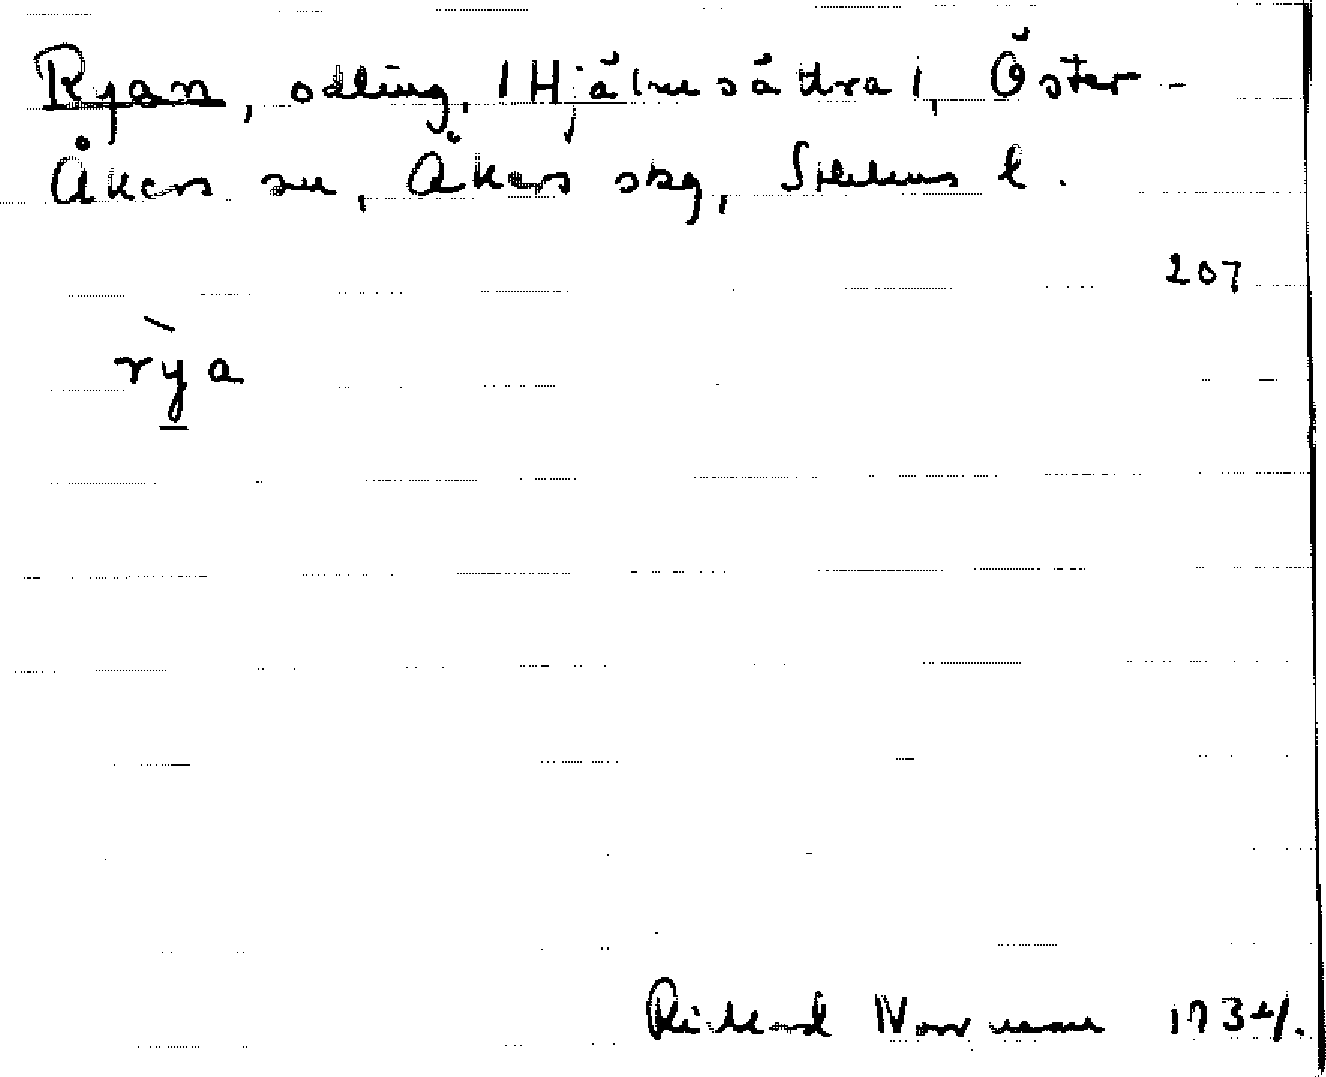 Ryan, odling, (Hjälmsättra), Öster-
Åkers sn, Åkers skg, Sthlms l.
207
rỳa
Rickard Norrman 1934.